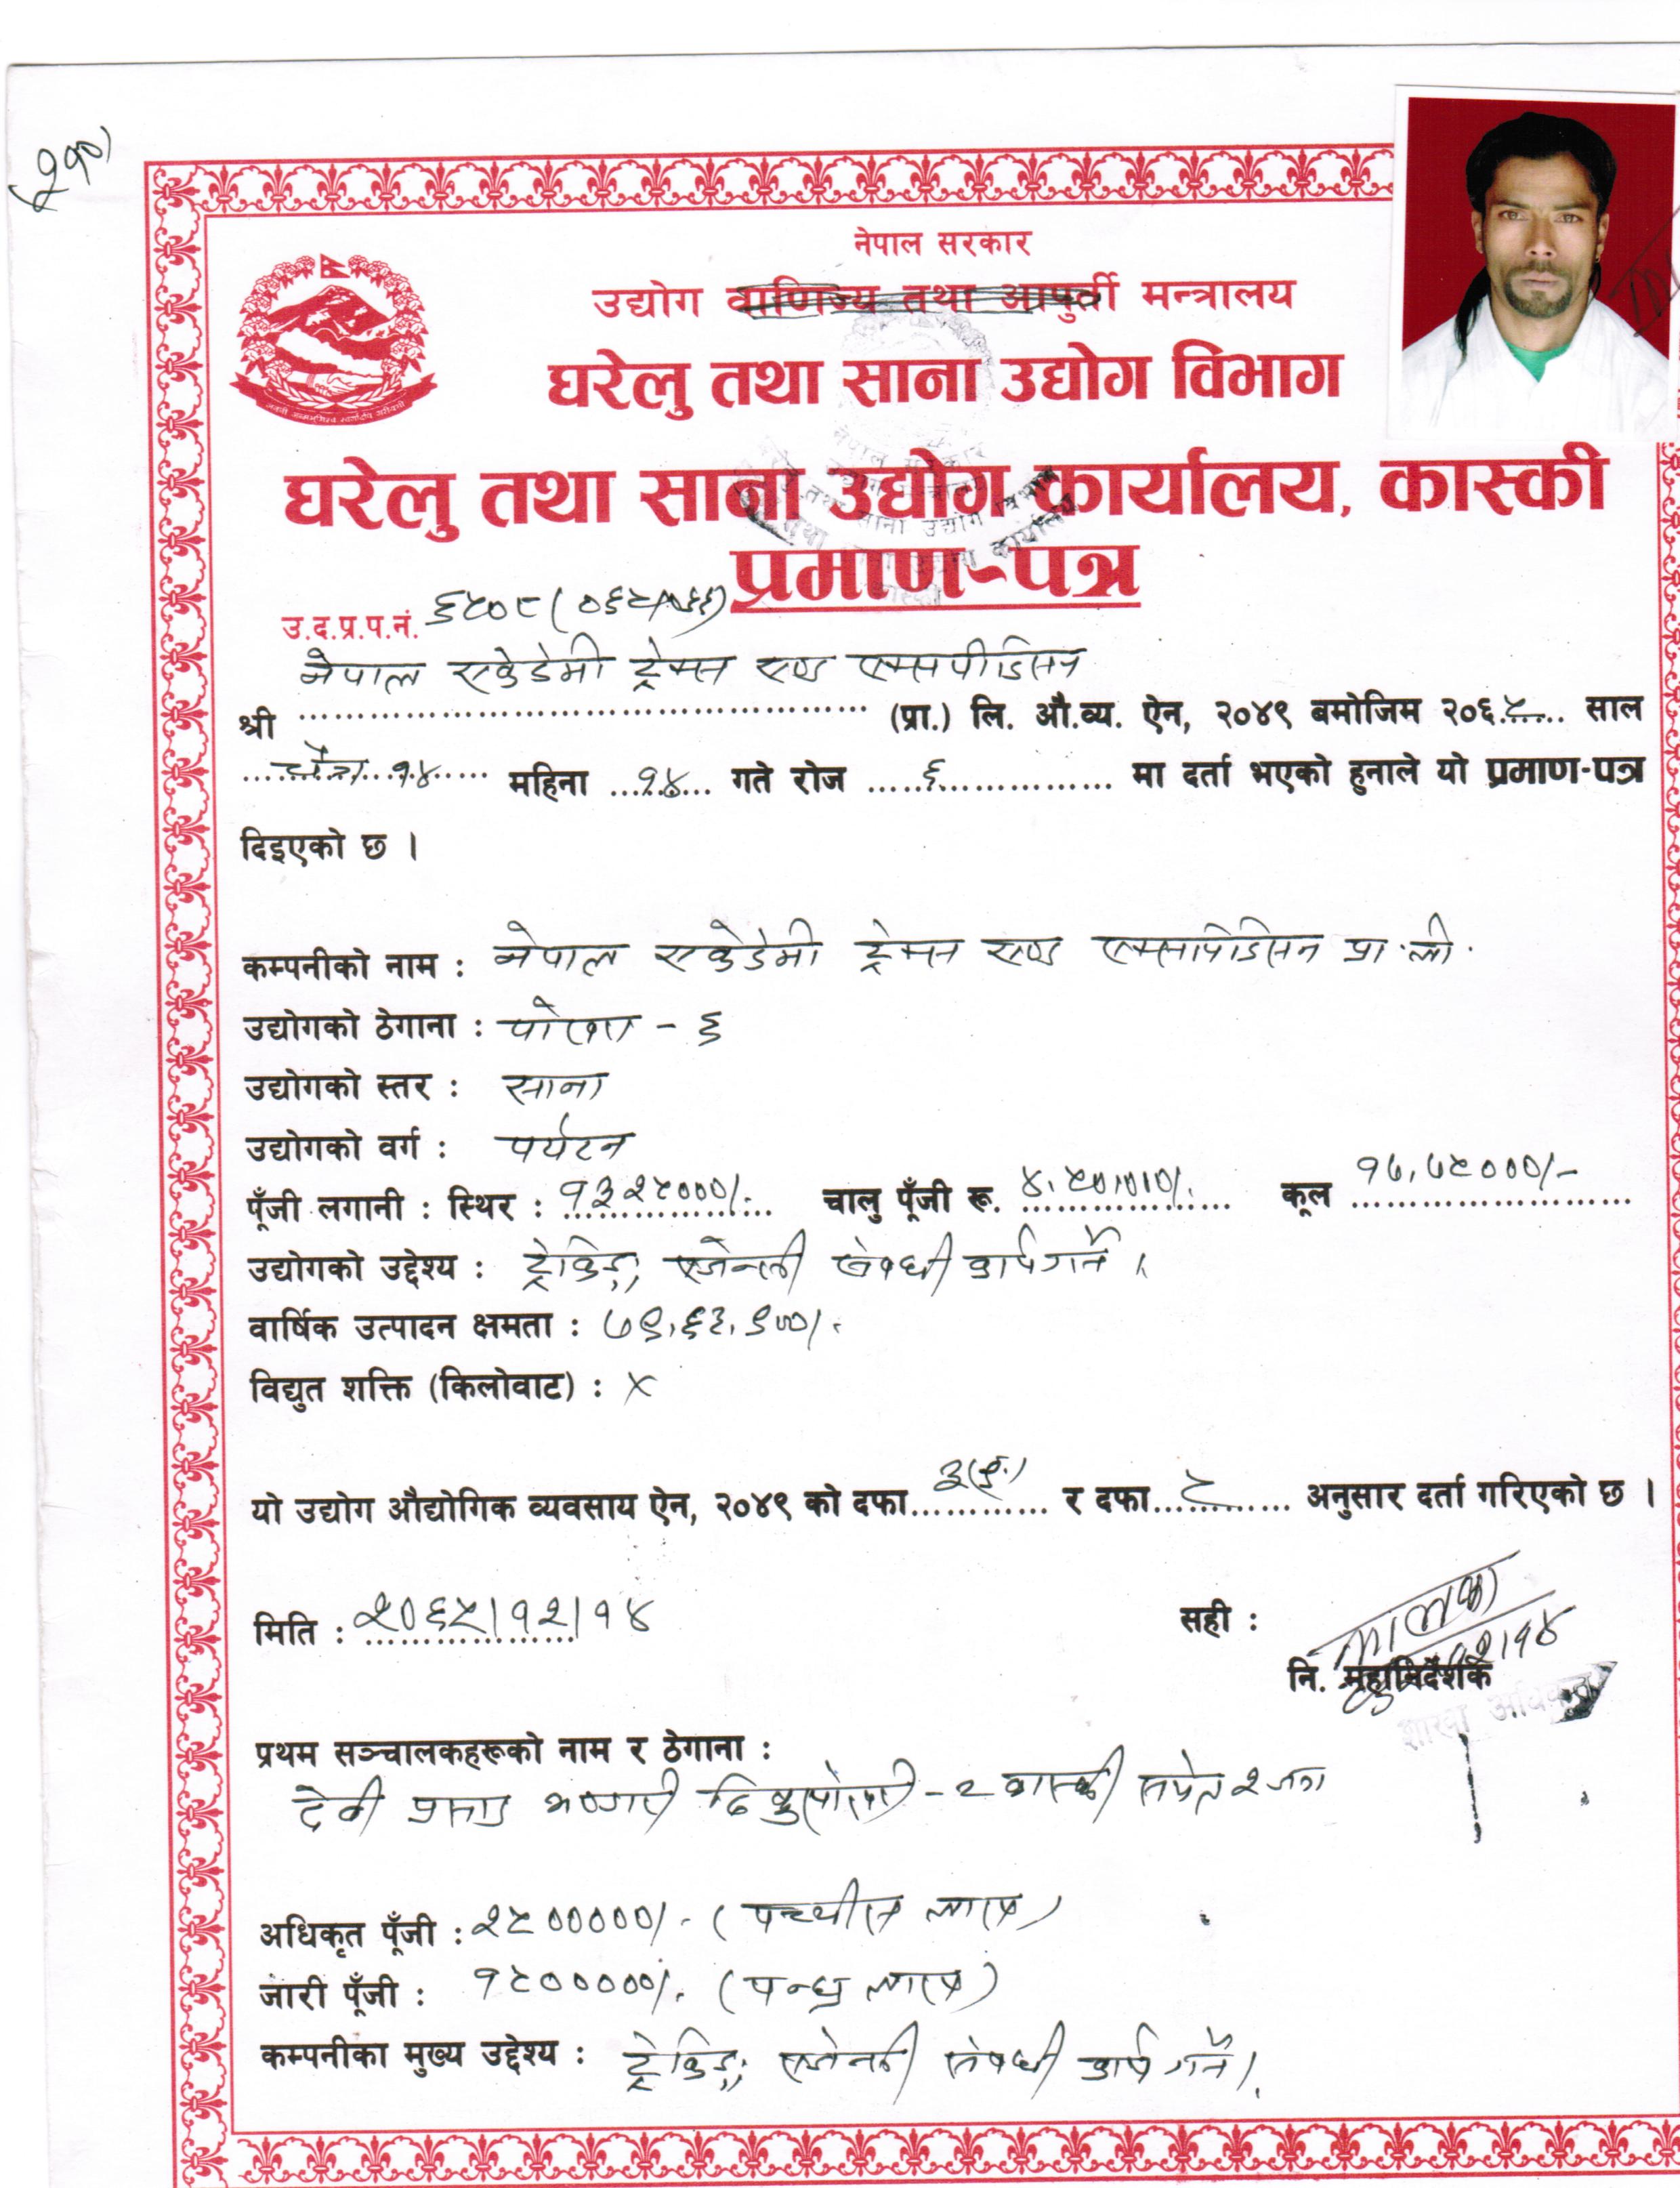 नेपाल सरकार
उद्योग वाणिज्य तथा आपुर्ती मन्त्रालय
घरेलु तथा साना उद्योग विभाग
घरेलु तथा साना उद्योग कार्यालय, कास्की
प्रमाण-पत्र
उ.द.प्र.प.नं. ६५०८ (०६५/०६६)
नेपाल एकेडेमी ट्रेक्स एण्ड एक्सपीडिसन
श्री (प्रा.) लि. औ.व्य. ऐन, २०४९ बमोजिम २०६५ साल
चैत्र १४ महिना १४ गते रोज ६ मा दर्ता भएको हुनाले यो प्रमाण-पत्र
दिइएको छ ।
कम्पनीको नाम : नेपाल एकेडेमी ट्रेक्स एण्ड एक्सपिडिसन प्रा.ली.
उद्योगको ठेगाना : पोखरा - ६
उद्योगको स्तर : साना
उद्योगको वर्ग : पर्यटन
पूँजी लगानी : स्थिर : १३२५०००/- चालु पूँजी रू. ४,५०,०००/- कूल १७,७५०००/-
उद्योगको उद्देश्य : ट्रेकिङ्ग एजेन्सी संबन्धी कार्य गर्ने ।
वार्षिक उत्पादन क्षमता : ७९,६३,९००/-
विद्युत शक्ति (किलोवाट) : x
यो उद्योग औद्योगिक व्यवसाय ऐन, २०४९ को दफा र दफा अनुसार दर्ता गरिएको छ ।
मिति : २०६५।१२।१४ सही :
नि. महानिर्देशक
शाखा अधिकृत
प्रथम सञ्चालकहरूको नाम र ठेगाना :
देवी प्रसाद भण्डारी ढिकुरपोखरी - २ कास्की समेत २ जना
अधिकृत पूँजी : २५०००००/- (पच्चीस लाख)
जारी पूँजी : १५०००००/- (पन्ध्र लाख)
कम्पनीका मुख्य उद्देश्य : ट्रेकिङ्ग एजेन्सी संबन्धी कार्य गर्ने ।